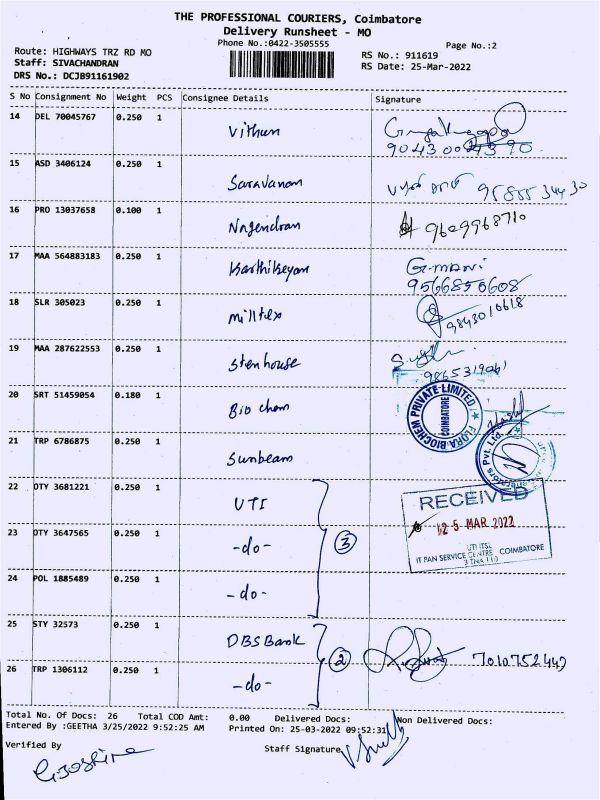 THE PROFESSIONAL COURIERS, Coimbatore
Delivery Runsheet - MO
Phone No.:0422-3505555
Page No.:2
Route: HIGHWAYS TRZ RD MO
Staff: SIVACHANDRAN
DRS No.: DCJB91161902
RS No.: 911619
RS Date: 25-Mar-2022
S No Consignment No Weight PCS Consignee Details Signature
14 DEL 70045767 0.250 1 Vithun
15 ASD 3406124 0.250 1 Saravanan
16 PRO 13037658 0.100 1 Nagendran 9629968710
17 MAA 564883183 0.250 1 Karthikeyan G.mani
9566850608
18 SLR 305023 0.250 1 milltex 9843010618
19 MAA 287622553 0.250 1 Stenhouse
20 SRT 51459054 0.180 1 Bio chem FLORA BIOCHEM PRIVATE LIMITED COIMBATORE
21 TRP 6786875 0.250 1 Sunbeam Pvt. Ltd.
22 OTY 3681221 0.250 1 UTI RECEIVED
23 OTY 3647565 0.250 1 -do- 3 25 MAR 2022
UTI ITSL
IT PAN SERVICE CENTRE COIMBATORE
24 POL 1885489 0.250 1 -do-
25 STY 32573 0.250 1 DBS Bank
26 TRP 1306112 0.250 1 -do- 2 7010752447
Total No. Of Docs: 26 Total COD Amt: 0.00 Delivered Docs: Non Delivered Docs:
Entered By :GEETHA 3/25/2022 9:52:25 AM Printed On: 25-03-2022 09:52:31
Verified By Staff Signature